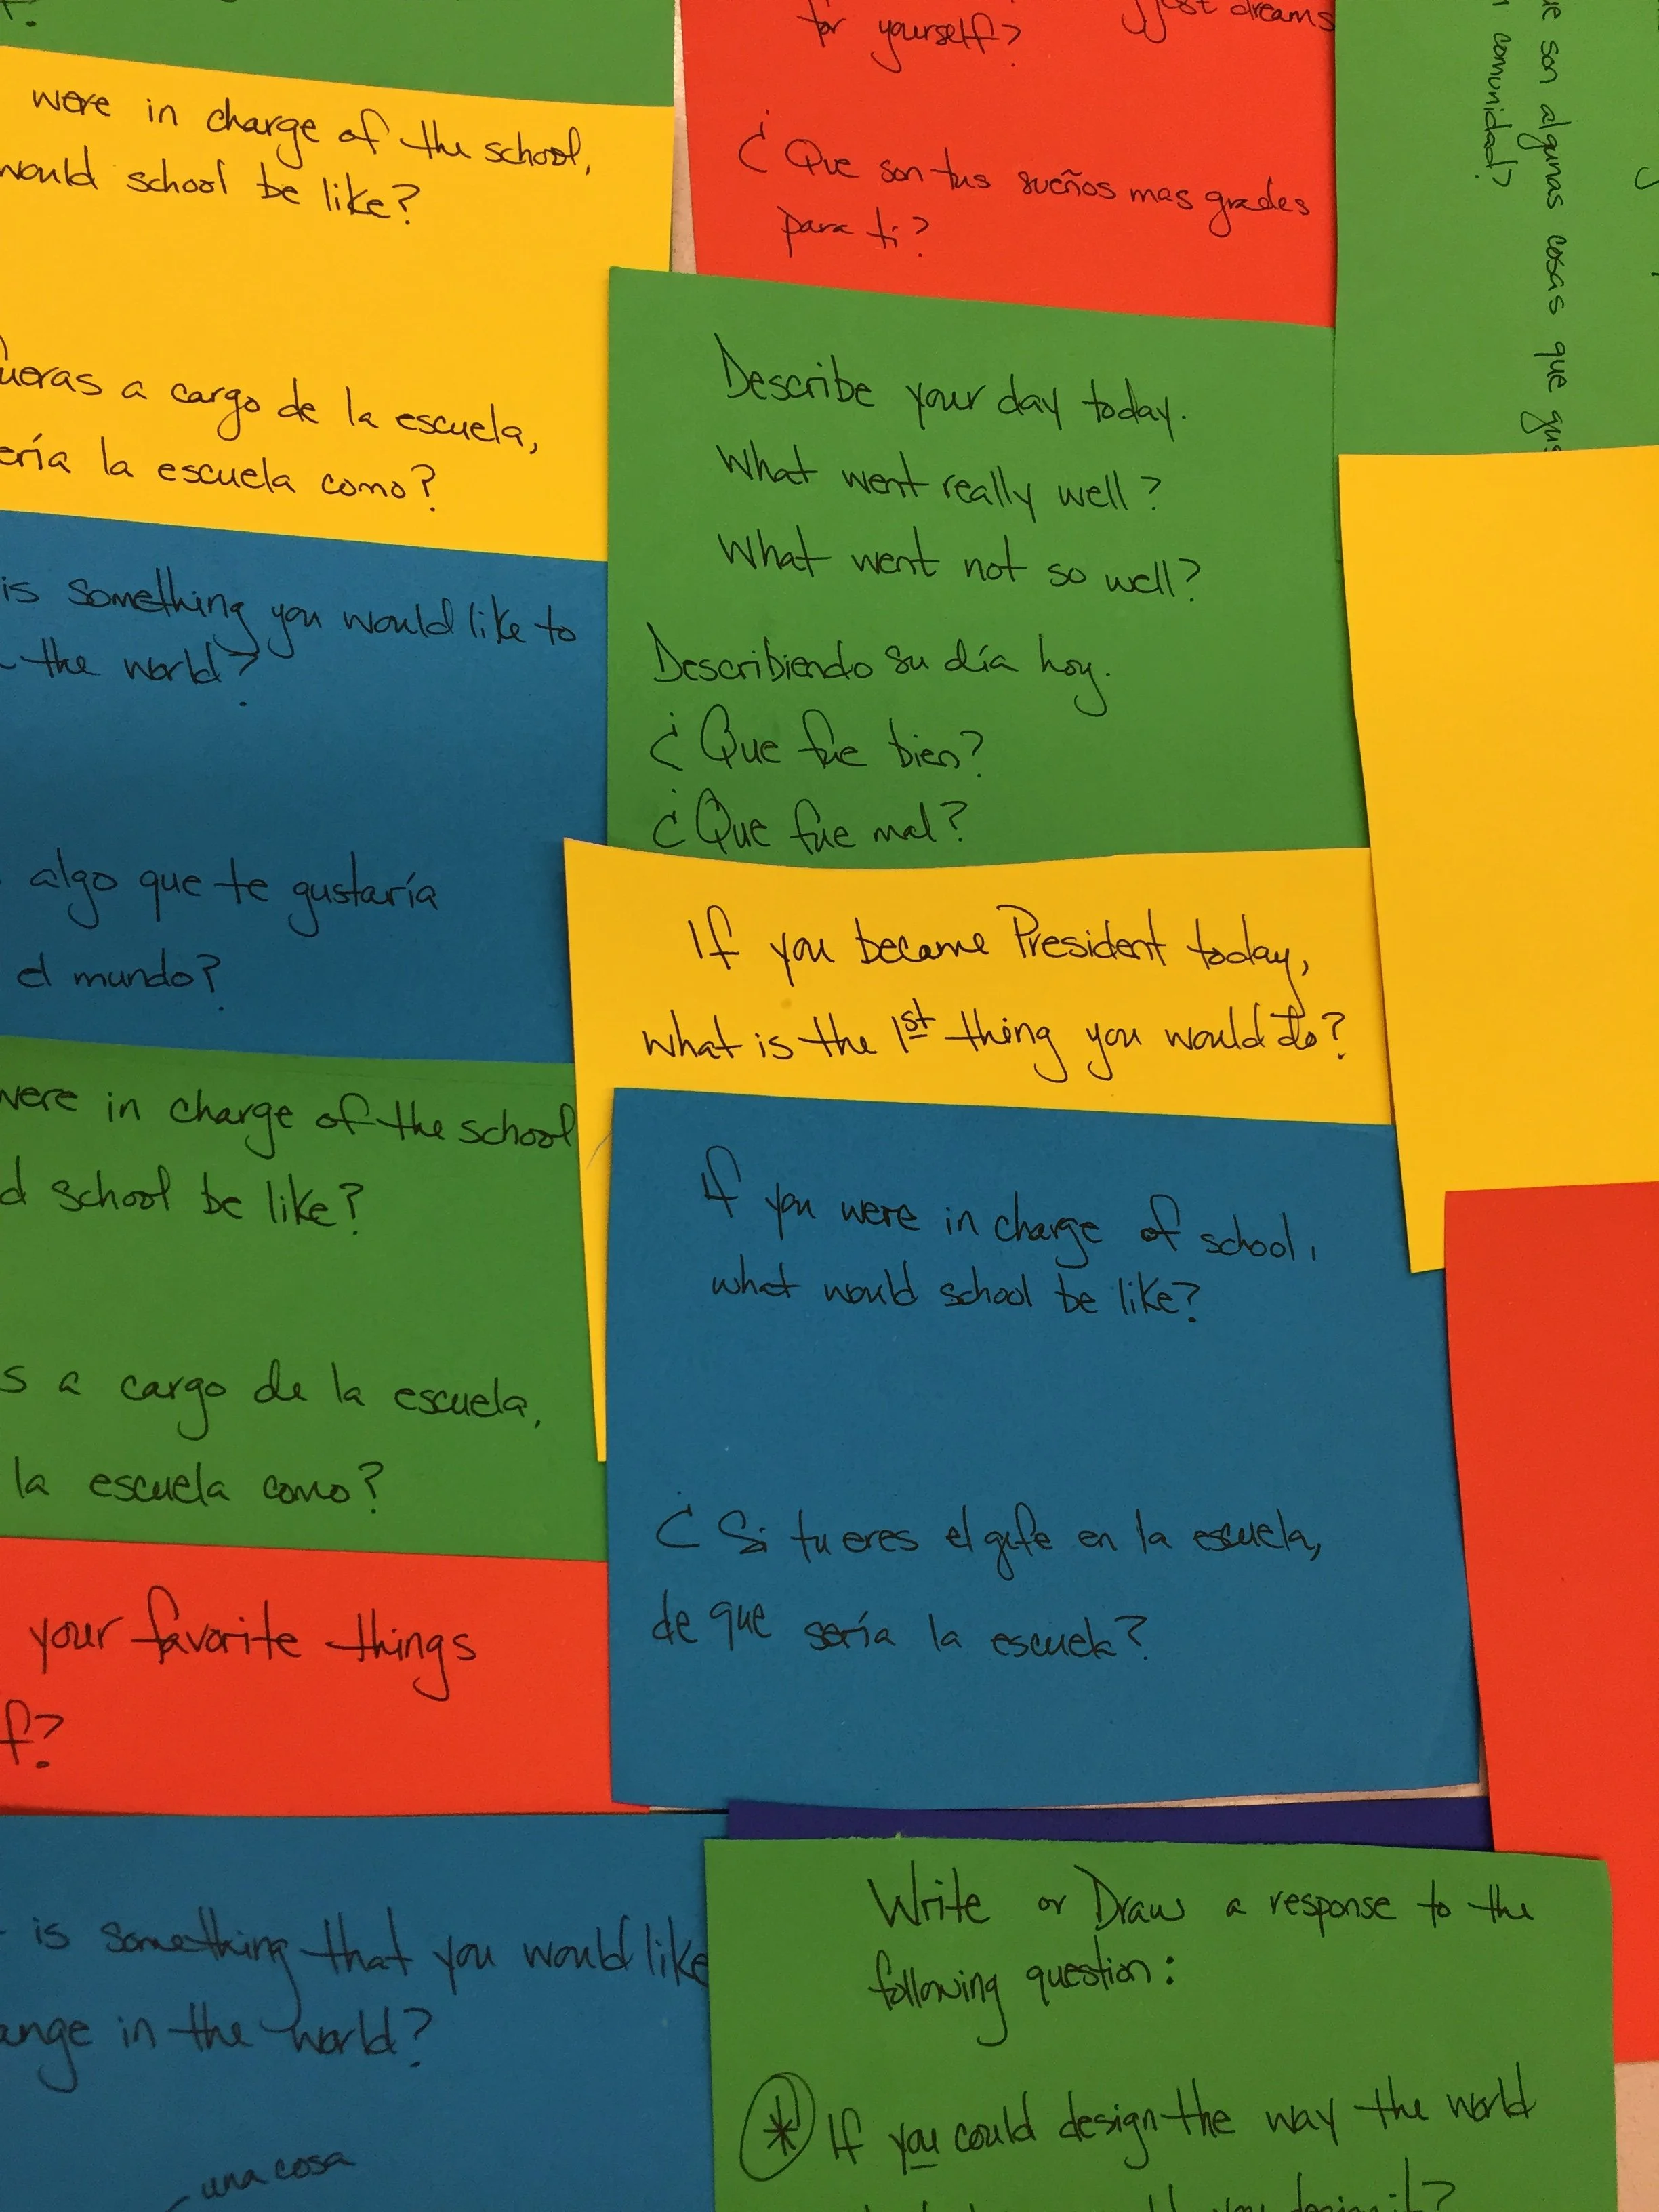 were in charge of the school,
would school be like?
ueras a cargo de la escuela,
ería la escuela como?
for yourself?
dreams
¿Que son tus sueños mas grades
para ti?
ue son algunas cosas que gus
comunidad?
Describe your day today.
What went really well?
What went not so well?
Describiendo su día hoy.
¿Que fue bien?
¿Que fue mal?
is something you would like to
the world?
algo que te gustaría
el mundo?
If you became President today,
what is the 1st thing you would do?
were in charge of the school
d school be like?
s a cargo de la escuela,
la escuela como?
If you were in charge of school,
what would school be like?
¿Si tu eres el gefe en la escuela,
de que sería la escuela?
your favorite things
f?
is something that you would like
ange in the world?
una cosa
Write or Draw a response to the
following question:
* If you could design the way the world